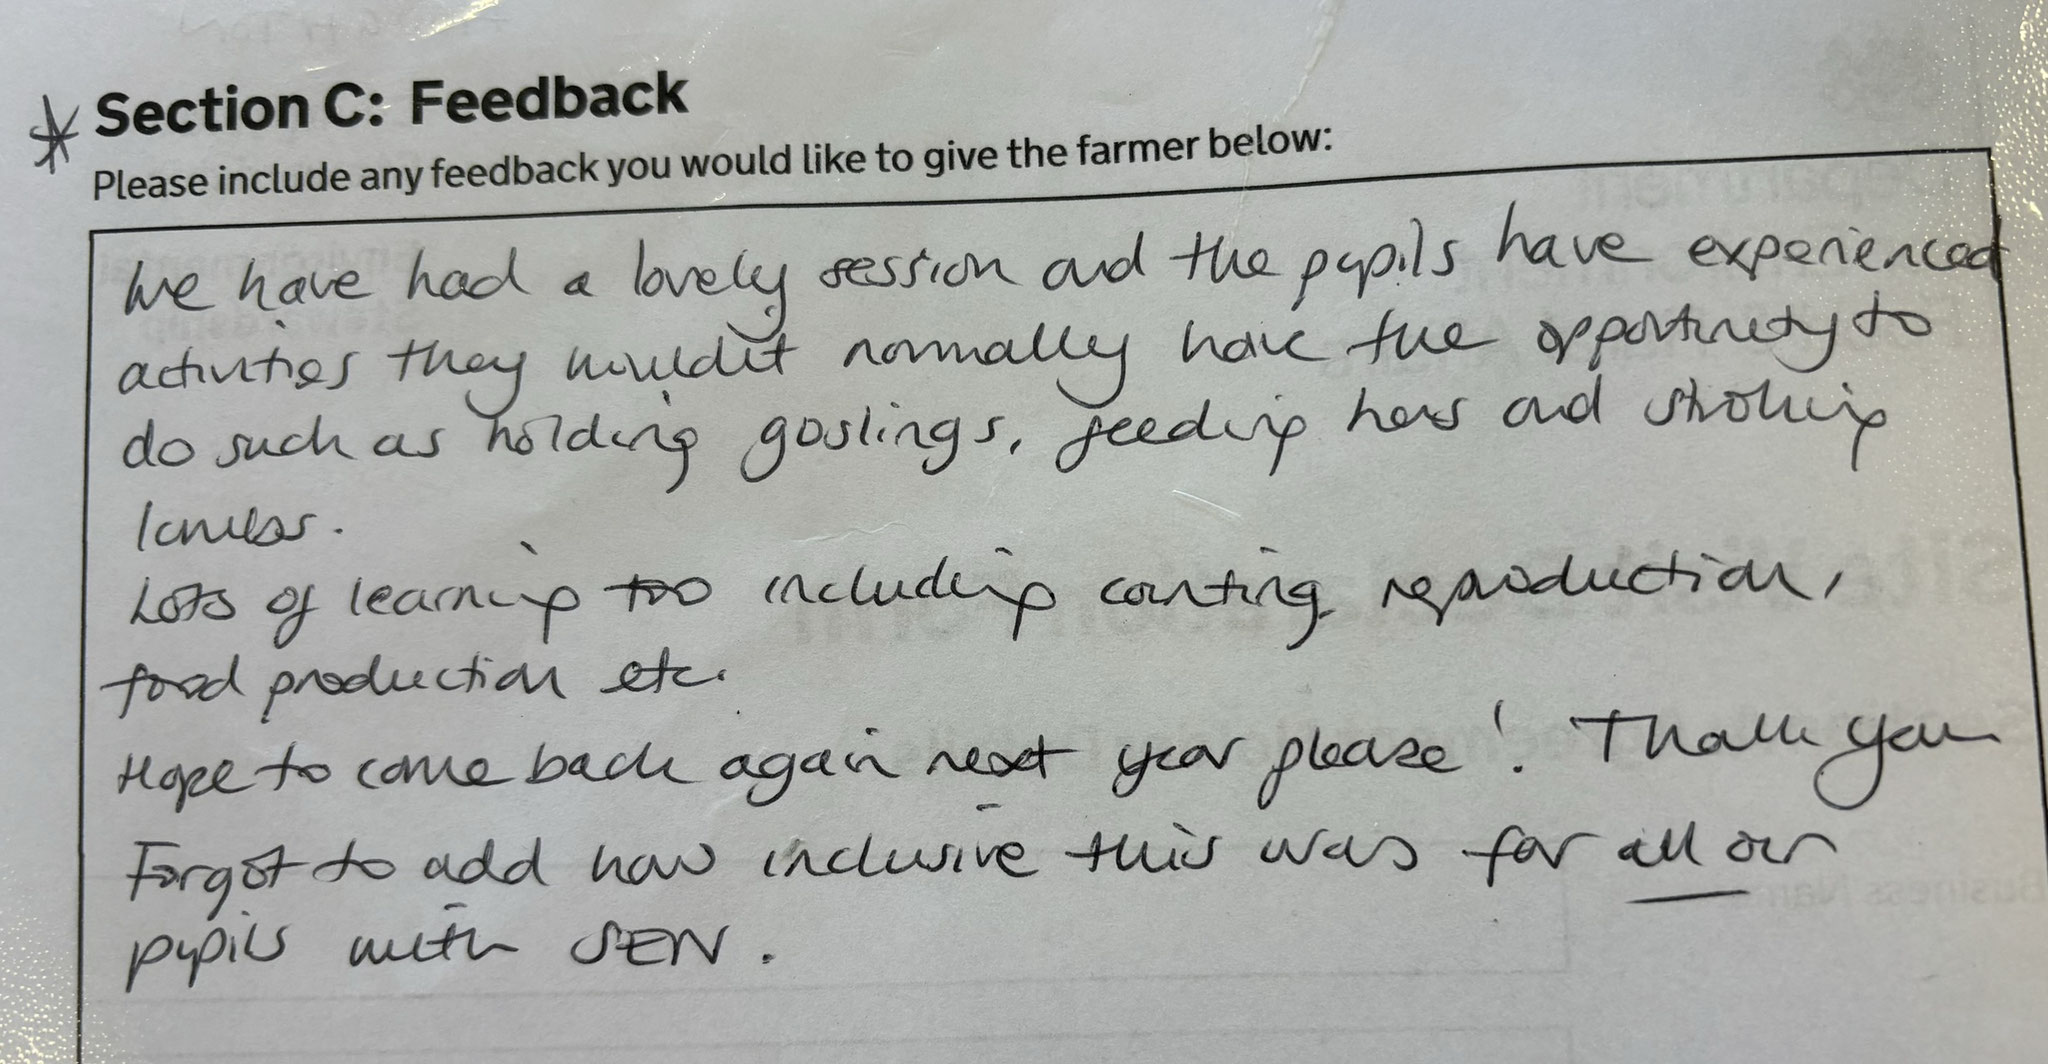 * Section C: Feedback
Please include any feedback you would like to give the farmer below:
We have had a lovely session and the pupils have experienced
activities they wouldn't normally have the opportunity to
do such as holding goslings, feeding hens and stroking
lambs.
Lots of learning too including counting, reproduction,
food production etc.
Hope to come back again next year please! Thank you
Forgot to add how inclusive this was for all our
pupils with SEN.